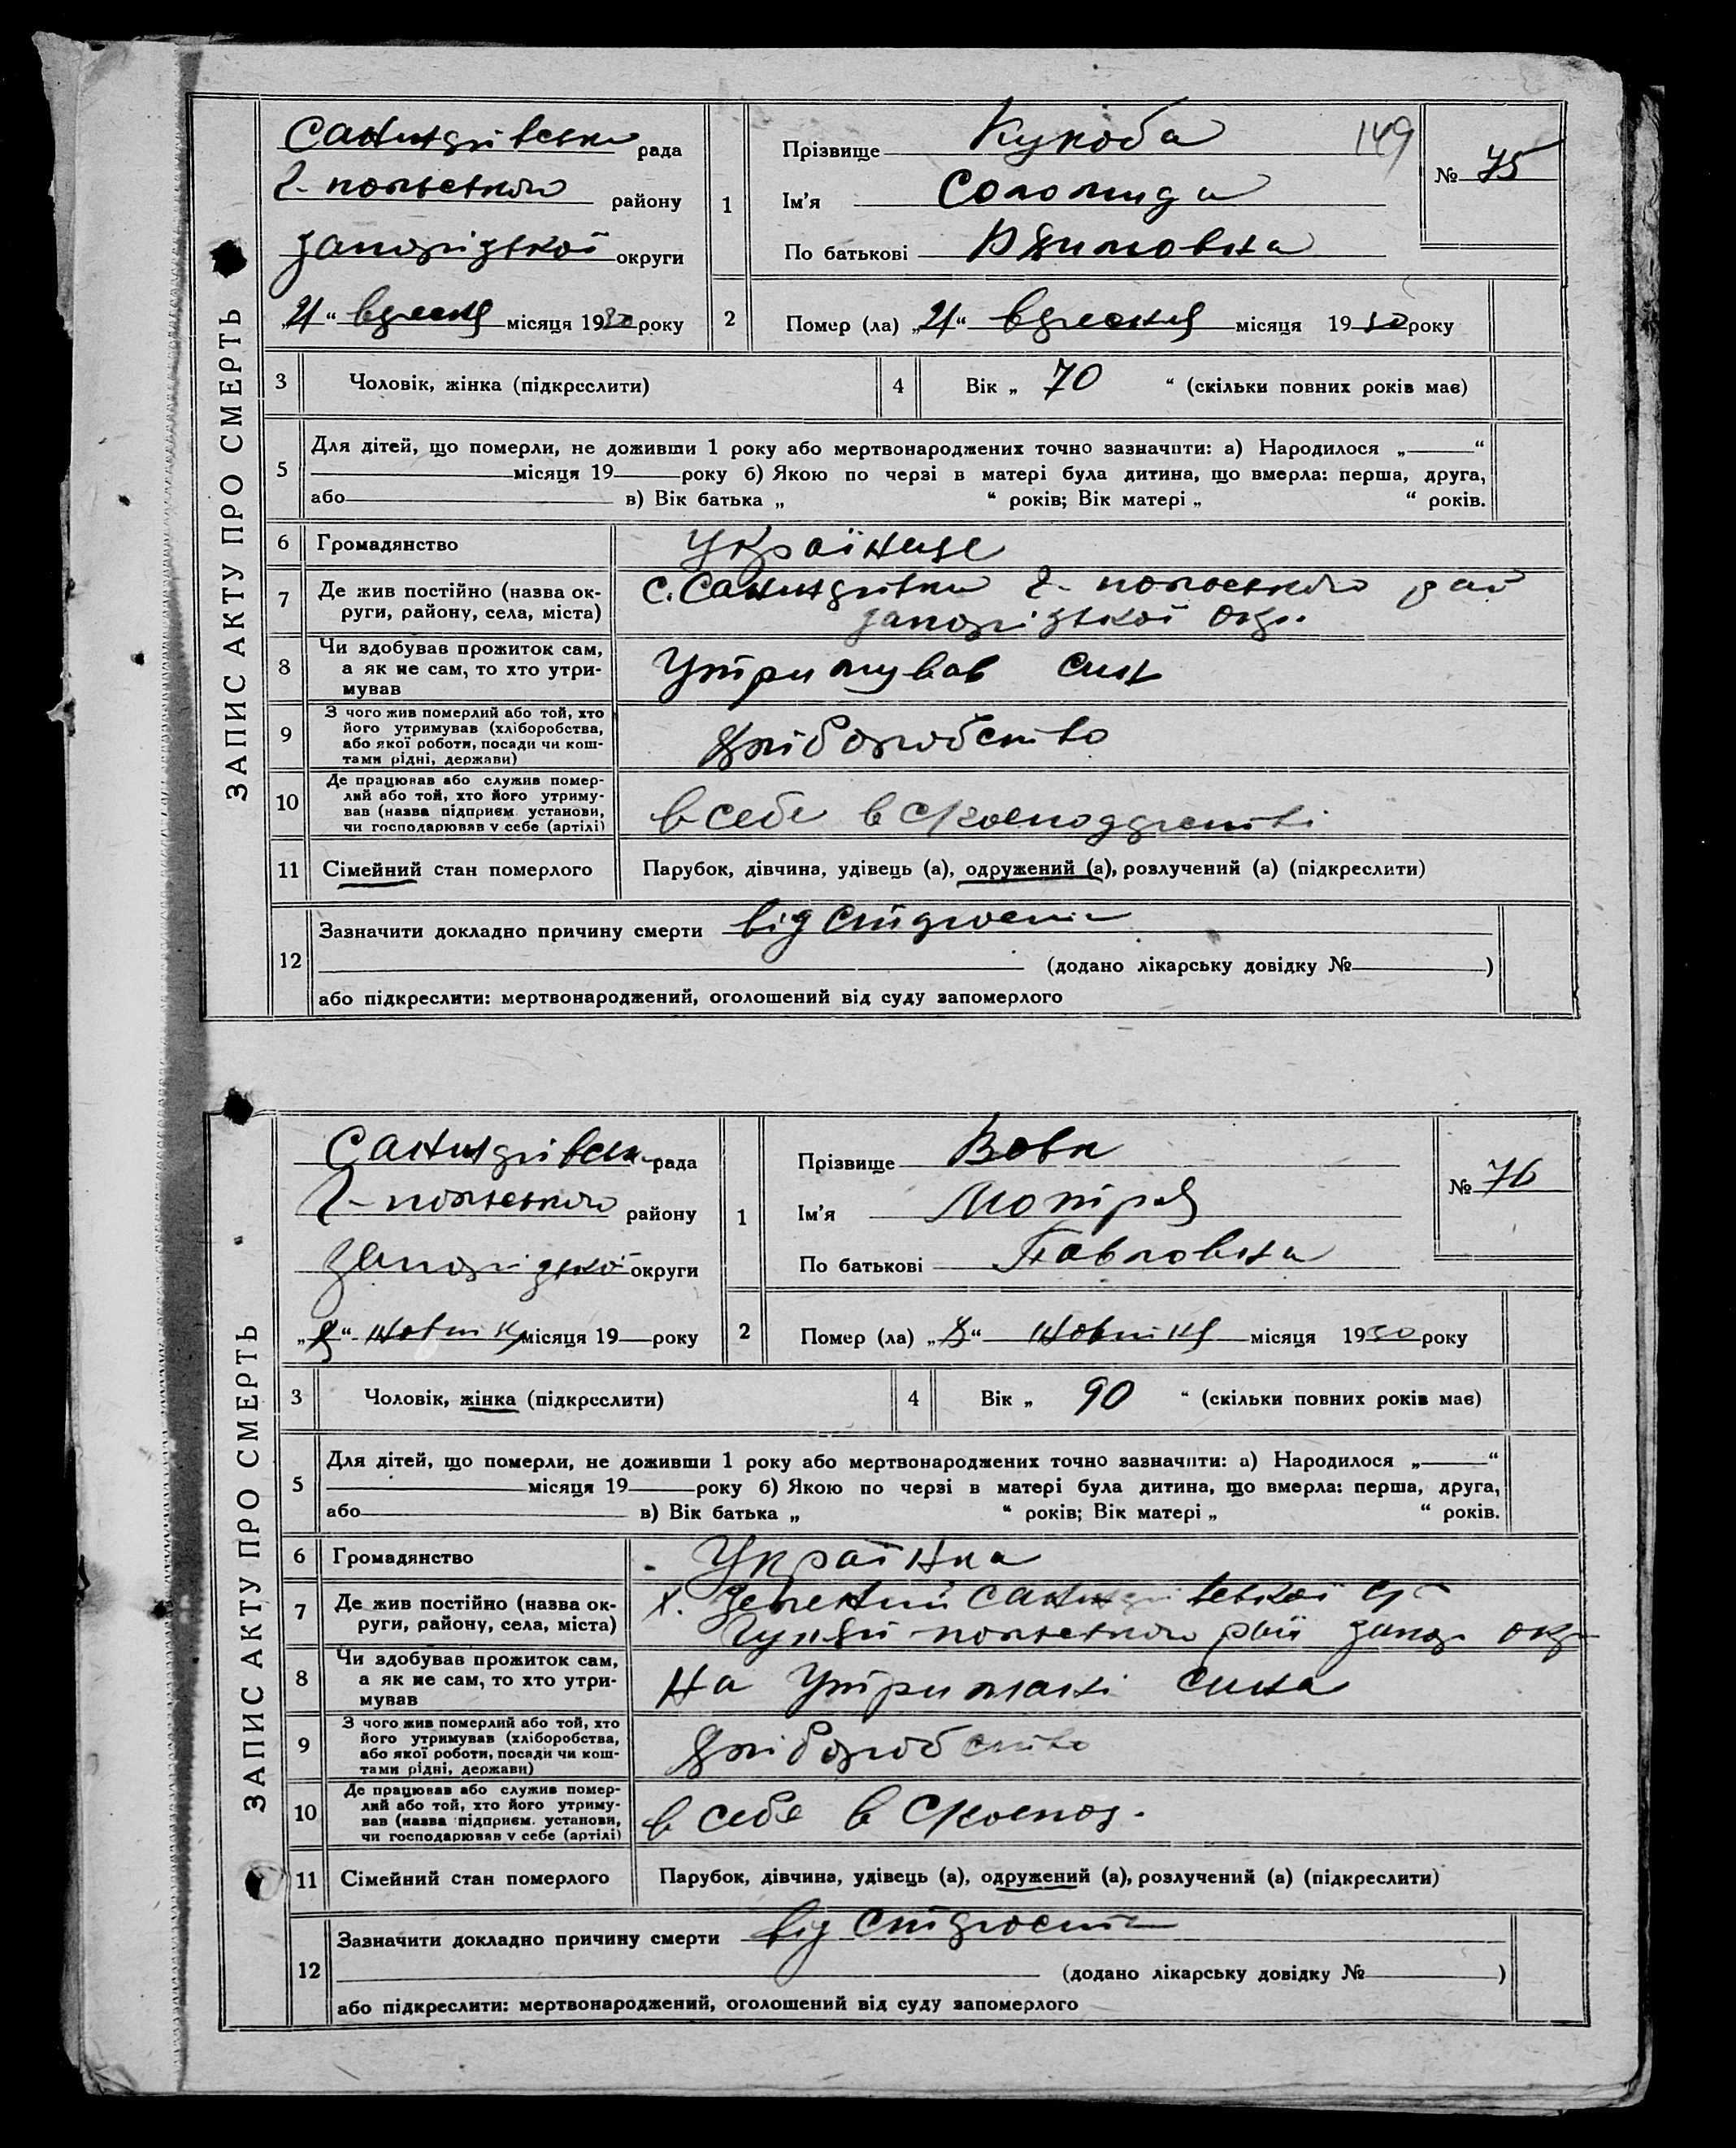 ЗАПИС АКТУ ПРО СМЕРТЬ
рада
Г-польського району
Запорізької округи
„21“ вересня місяця 1930 року
1
Прізвище Кукоба
149
№ 75
Ім'я Соломида
По батькові
2
Помер (ла) „21“ вересня місяця 1930 року
3
Чоловік, жінка (підкреслити)
4
Вік „ 70 “ (скільки повних років має)
5
Для дітей, що померли, не доживши 1 року або мертвонароджених точно зазначити: а) Народилося „ “
місяця 19 року б) Якою по черзі в матері була дитина, що вмерла: перша, друга,
або в) Вік батька „ “ років; Вік матері „ “ років.
6
Громадянство
7
Де жив постійно (назва ок-
руги, району, села, міста)
с. Г-польського рай
Запорізької окр.
8
Чи здобував прожиток сам,
а як не сам, то хто утри-
мував
Утримував син
9
З чого жив померлий або той, хто
його утримував (хліборобства,
або якої роботи, посади чи кош-
тами рідні, держави)
Хліборобство
10
Де працював або служив помер-
лий або той, хто його утриму-
вав (назва підприєм. установи,
чи господарював у себе (артілі)
в себе в
11
Сімейний стан померлого
Парубок, дівчина, удівець (а), одружений (а), розлучений (а) (підкреслити)
12
Зазначити докладно причину смерти від старости
(додано лікарську довідку № )
або підкреслити: мертвонароджений, оголошений від суду запомерлого
ЗАПИС АКТУ ПРО СМЕРТЬ
рада
Г-польського району
Запорізької округи
„8“ Жовтня місяця 19 року
1
Прізвище Вовк
№ 76
Ім'я Мотря
По батькові Павловна
2
Помер (ла) „8“ Жовтня місяця 1930 року
3
Чоловік, жінка (підкреслити)
4
Вік „ 90 “ (скільки повних років має)
5
Для дітей, що померли, не доживши 1 року або мертвонароджених точно зазначити: а) Народилося „ “
місяця 19 року б) Якою по черзі в матері була дитина, що вмерла: перша, друга,
або в) Вік батька „ “ років; Вік матері „ “ років.
6
Громадянство
Українка
7
Де жив постійно (назва ок-
руги, району, села, міста)
х. Зелений с/р
Гуляй-польського рай запор окр
8
Чи здобував прожиток сам,
а як не сам, то хто утри-
мував
На утриманні сина
9
З чого жив померлий або той, хто
його утримував (хліборобства,
або якої роботи, посади чи кош-
тами рідні, держави)
Хліборобство
10
Де працював або служив помер-
лий або той, хто його утриму-
вав (назва підприєм. установи,
чи господарював у себе (артілі)
в себе в
11
Сімейний стан померлого
Парубок, дівчина, удівець (а), одружений (а), розлучений (а) (підкреслити)
12
Зазначити докладно причину смерти від старости
(додано лікарську довідку № )
або підкреслити: мертвонароджений, оголошений від суду запомерлого